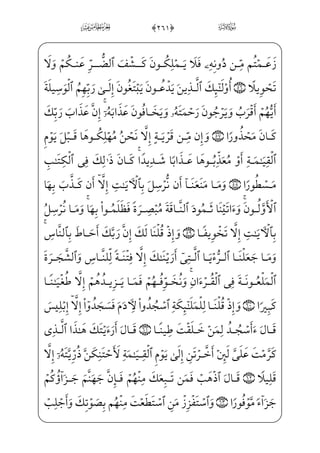 ﴿٢٦١﴾
زَعَمْتُم مِّن دُونِهِۦ فَلَا يَمْلِكُونَ كَشْفَ ٱلضُّرِّ عَنكُمْ وَلَا
تَحْوِيلًا ۝٥٦ أُو۟لَٰٓئِكَ ٱلَّذِينَ يَدْعُونَ يَبْتَغُونَ إِلَىٰ رَبِّهِمُ ٱلْوَسِيلَةَ
أَيُّهُمْ أَقْرَبُ وَيَرْجُونَ رَحْمَتَهُۥ وَيَخَافُونَ عَذَابَهُۥٓ ۚ إِنَّ عَذَابَ رَبِّكَ
كَانَ مَحْذُورًا ۝٥٧ وَإِن مِّن قَرْيَةٍ إِلَّا نَحْنُ مُهْلِكُوهَا قَبْلَ يَوْمِ
ٱلْقِيَٰمَةِ أَوْ مُعَذِّبُوهَا عَذَابًا شَدِيدًا ۚ كَانَ ذَٰلِكَ فِى ٱلْكِتَٰبِ
مَسْطُورًا ۝٥٨ وَمَا مَنَعَنَآ أَن نُّرْسِلَ بِٱلْءَايَٰتِ إِلَّآ أَن كَذَّبَ بِهَا
ٱلْأَوَّلُونَ ۚ وَءَاتَيْنَا ثَمُودَ ٱلنَّاقَةَ مُبْصِرَةً فَظَلَمُوا۟ بِهَا ۚ وَمَا نُرْسِلُ
بِٱلْءَايَٰتِ إِلَّا تَخْوِيفًا ۝٥٩ وَإِذْ قُلْنَا لَكَ إِنَّ رَبَّكَ أَحَاطَ بِٱلنَّاسِ ۚ
وَمَا جَعَلْنَا ٱلرُّءْيَا ٱلَّتِىٓ أَرَيْنَٰكَ إِلَّا فِتْنَةً لِّلنَّاسِ وَٱلشَّجَرَةَ
ٱلْمَلْعُونَةَ فِى ٱلْقُرْءَانِ ۚ وَنُخَوِّفُهُمْ فَمَا يَزِيدُهُمْ إِلَّا طُغْيَٰنًا
كَبِيرًا ۝٦٠ وَإِذْ قُلْنَا لِلْمَلَٰٓئِكَةِ ٱسْجُدُوا۟ لِءَادَمَ فَسَجَدُوٓا۟ إِلَّآ إِبْلِيسَ
قَالَ ءَأَسْجُدُ لِمَنْ خَلَقْتَ طِينًا ۝٦١ قَالَ أَرَءَيْتَكَ هَٰذَا ٱلَّذِى
كَرَّمْتَ عَلَىَّ لَئِنْ أَخَّرْتَنِ إِلَىٰ يَوْمِ ٱلْقِيَٰمَةِ لَأَحْتَنِكَنَّ ذُرِّيَّتَهُۥٓ إِلَّا
قَلِيلًا ۝٦٢ قَالَ ٱذْهَبْ فَمَن تَبِعَكَ مِنْهُمْ فَإِنَّ جَهَنَّمَ جَزَآؤُكُمْ
جَزَآءً مَّوْفُورًا ۝٦٣ وَٱسْتَفْزِزْ مَنِ ٱسْتَطَعْتَ مِنْهُم بِصَوْتِكَ وَأَجْلِبْ